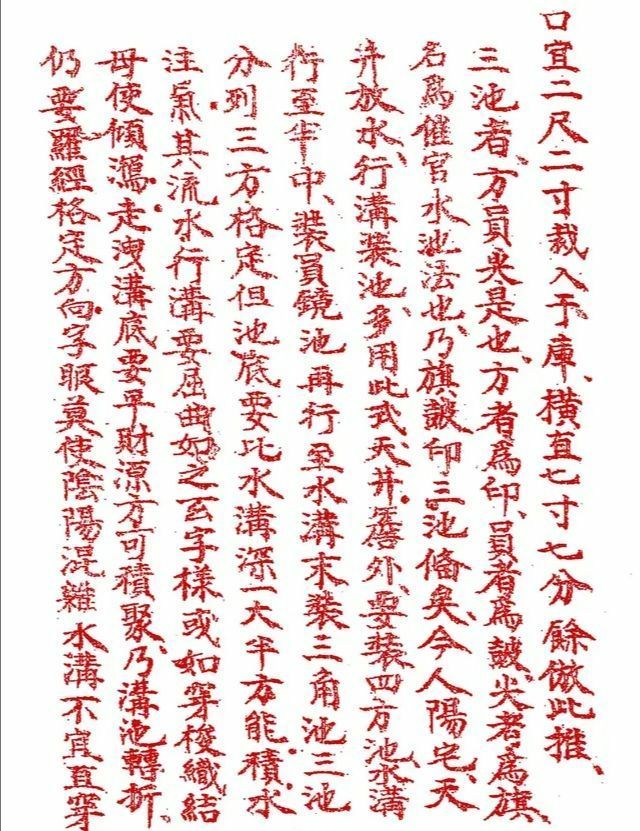 口宜二尺二寸裁入于庫、橫直七寸七分餘倣此推、
三池者、方員尖是也、方者為印、員者為鼓、尖者為旗、
名為催官水池法也、乃旗鼓印三池俻矣、今人陽宅、天
井放水、行溝裝池、多用此式、天井、簷外、要裝四方池、水溝
行至半中、裝員鏡池、再行至水溝末、裝三角池、三池
分列三方格定但池底要比水溝深一大半方能積水
注氣、其流水行溝要屈曲如之玄字樣或如穿梭織結
毋使傾瀉、走洩溝底要平財源方可積聚、乃溝池轉折、
仍要羅經格定方向、字眼莫使陰陽混雜水溝不宜直穿